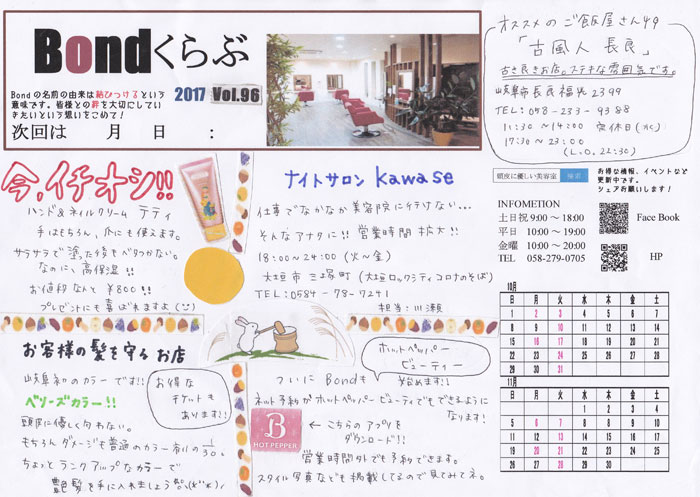 Bondくらぶ
Bondの名前の由来は結びつけるという
意味です。皆様との絆を大切にしてい
きたいという想いをこめて!
2017 Vol.96
次回は 月 日 :
オススメのご飯屋さん49
「古風人 長良」
古き良きお店。ステキな雰囲気です。
岐阜市長良福光2399
TEL:058-233-9388
11:30~14:00 定休日(水)
17:30~23:00
(L.O.22:30)
頭皮に優しい美容室 検索
お得な情報、イベントなど
更新中です。
シェアお願いします!
INFOMETION
土日祝 9:00~18:00
平日 10:00~19:00
金曜 10:00~20:00
TEL 058-279-0705
Face Book
HP
今、イチオシ!!
ハンド&ネイルクリーム テティ
手はもちろん、爪にも使えます。
サラサラで塗った後もベタつかない。
なのに、高保湿!!
お値段なんと ¥800!!
プレゼントにも喜ばれますよ
ナイトサロン kawase
仕事でなかなか美容院に行けない...
そんなアナタに!! 営業時間拡大!!
18:00~24:00 (火~金)
大垣市 三塚町 (大垣ロックシティコロナのそば)
TEL:0584-78-7241
担当:川瀬
お客様の髪を守るお店
岐阜初のカラーです!!
ベリーズカラー!!
お得な
チケットも
あります!!
頭皮に優しく匂わない。
もちろんダメージも普通のカラー剤の1/30。
ちょっとランクアップなカラーで
艶髪を手に入れましょう
ホットペッパー
ビューティー
ついにBondも 始めます!!
ネット予約がホットペッパービューティでもできるように
なります!
B
HOT PEPPER
← こちらのアプリを
ダウンロード!!
営業時間外でも予約できます。
スタイル写真なども掲載してるので見てみてネ。
10月
日 月 火 水 木 金 土
1 2 3 4 5 6 7
8 9 10 11 12 13 14
15 16 17 18 19 20 21
22 23 24 25 26 27 28
29 30 31
11月
日 月 火 水 木 金 土
1 2 3 4
5 6 7 8 9 10 11
12 13 14 15 16 17 18
19 20 21 22 23 24 25
26 27 28 29 30